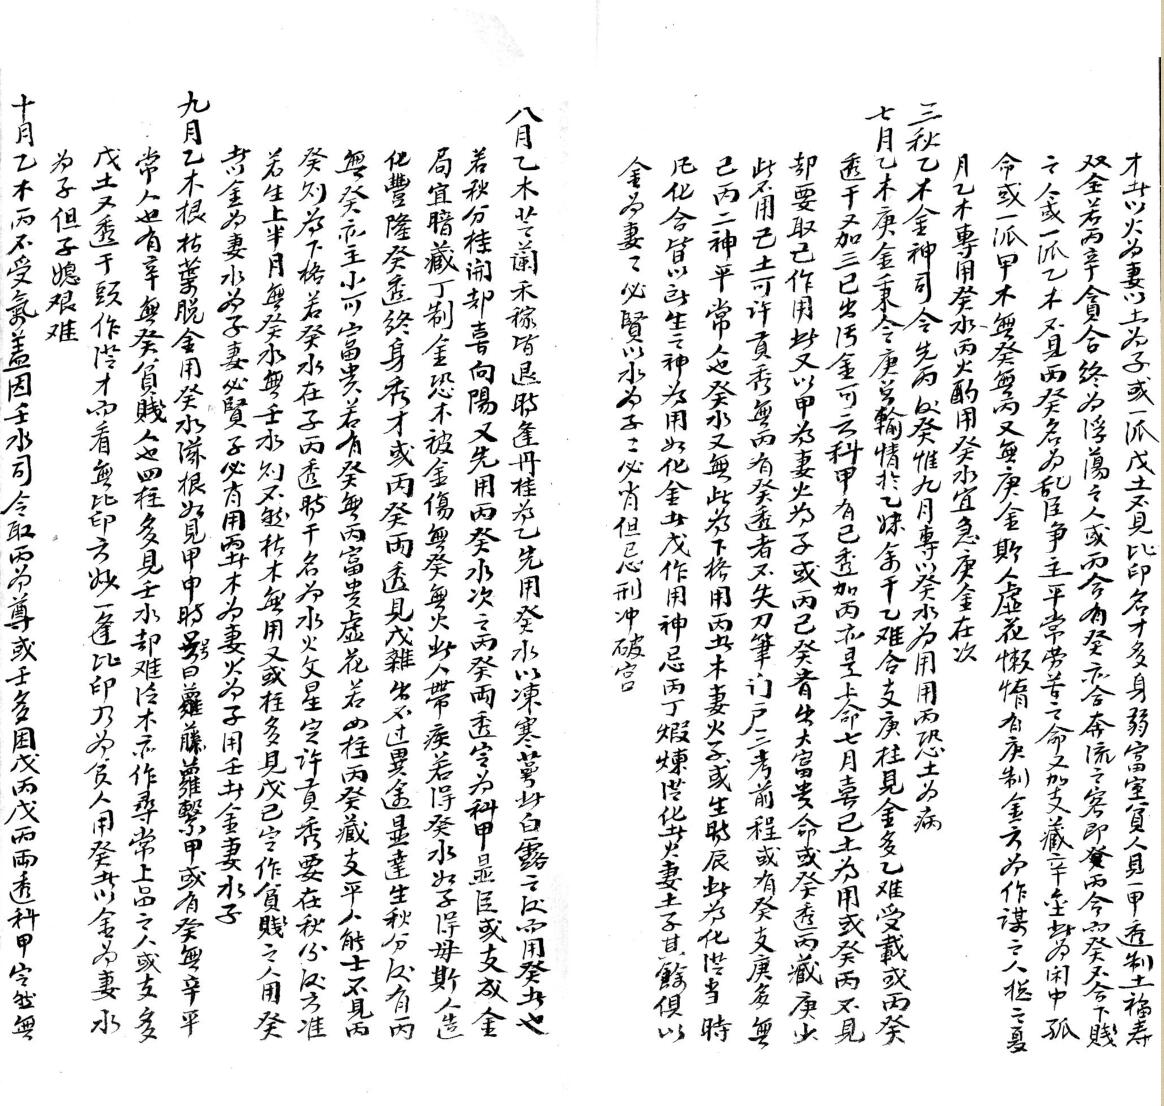 才者以火為妻以土為子或一派戊土不見比印名才多身弱富室貧人見一甲透制土福壽
双全若丙辛貪合終為浮蕩之人或丙合有癸亦合奔流之客即癸丙合而癸不合下賤
之人或一派乙木不見丙癸名為亂臣爭主平常勞苦之命又加支藏辛金此為閑中孤
命或一派甲木無癸無丙又無庚金斯人虛花懶惰有庚制金方為作謀之人概之夏
月乙木專用癸水丙火酌用癸水宜急庚金在次
三秋乙木金神司令先丙後癸惟九月專以癸水為用用丙恐土為病
七月乙木庚金秉令庚兄輸情於乙妹奈干乙難合支庚柱見金多乙难受載或丙癸
透干又加三己出污金可云科甲有己透加丙亦是上命七月喜己土為用或癸丙不見
却要取己作用此又以甲為妻火為子或丙己癸者出大富贵命或癸透丙藏庚少
此不用己土可許貢秀無丙有癸透者不失刀筆门戶三考前程或有癸支庚多無
己丙二神平常人也癸水又無此為下格用丙者木妻火子或生時辰此為化從当時
凡化合皆以所生之神為用如化金者戊作用神忌丙丁煅煉從化者火妻土子其餘俱以
金為妻之必賢以水為子三必肖但忌刑冲破宫
八月乙木芝蘭禾稼皆退時逢丹桂為乙先用癸水以凍寒萼此白露之後而用癸者也
若秋分桂開却喜向陽又先用丙癸水次之丙癸兩透定為科甲显臣或支成金
局宜暗藏丁制金恐木被金傷無癸無火此人带疾若得癸水如子得母斯人造
化豐隆癸透終身秀才或丙癸兩透見戊雜出不过異途显達生秋分後有丙
無癸亦主小可富贵若有癸無丙富贵虛花若四柱丙癸藏支平人能士不見丙
癸则為下格若癸水在子丙透時干名為水火文星定许貢秀要在秋分後方准
若生上半月無癸水無壬水则不然枯木無用又或柱多見戊己定作貧賤之人用癸
者以金為妻水為子妻必賢子必肖用丙者木為妻火為子用壬者金妻水子
九月乙木根枯葉脱金用癸水滌根如見甲申時号曰蘿藤蘿繫甲或有癸無辛平
常人也有辛無癸貧賤人也四柱多見壬水却难洽木亦作尋常上品之人或支多
戊土又透干頭作從才而看無比印方妙一逢比印乃為貧人用癸者以金為妻水
為子但子媳艰难
十月乙木丙不受氣盖因壬水司令取丙為尊或壬多困戊丙戊丙兩透科甲定然無